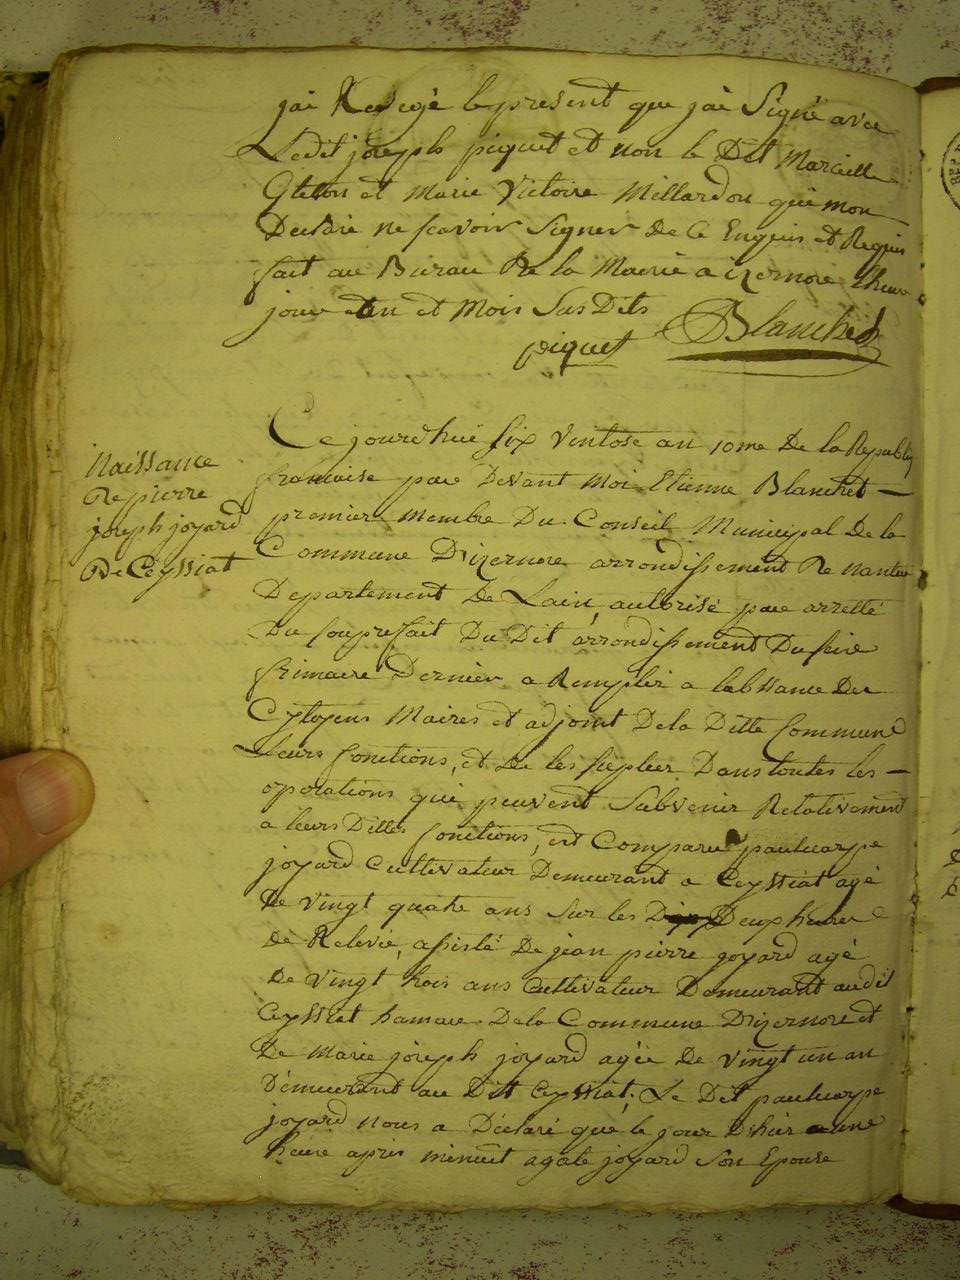 jai Redigé le present que jai Signé avec
Ledit joseph piquet et non le Dit Marcelle
et Marie Victoire Millardon qui mon
Declaré ne scavoir Signer de Ce Enquis et Requis
fait au Bureau De la Mairie a izernore lheure
jour an et Mois Sus Dits
piquet Blanchet
Naissance
De pierre
joseph joyard
De Ceyssiat
Ce jourdhui six Ventose an 10me De la Republiq
francaise par Devant Moi Etienne Blanchet —
premier Membre Du Conseil Municipal De la
Commune Dizernore arrondissement De nantua
Departement De Lain, autorisé par arretté
Du souprefait Du Dit arrondissement Du seize
frimaire Dernier a Remplir a labssance Des
Cytoyens Maires et adjoint Dela Ditte Commune
Leurs fonctions, et De les supleer Dans toutes les —
operations qui peuvent Subvenir Relativement
a leurs Dittes fonctions, est Comparu paulicarpe
joyard Cultivateur Demeurant a Ceyssiat agé
De vingt quatre ans Sur les Deux heures
De Relevée, assisté De jean pierre joyard agé
De vingt trois ans Cultivateur Demeurant audit
Ceyssiat hamau Dela Commune Dizernore et
De Marie joseph joyard agée De vingt un an
Demeurant au Dit Ceyssiat; Le Dit paulicarpe
joyard nous a Déclaré que le jour Dhier a une
heure apres minuit agate joyard Son Epouse